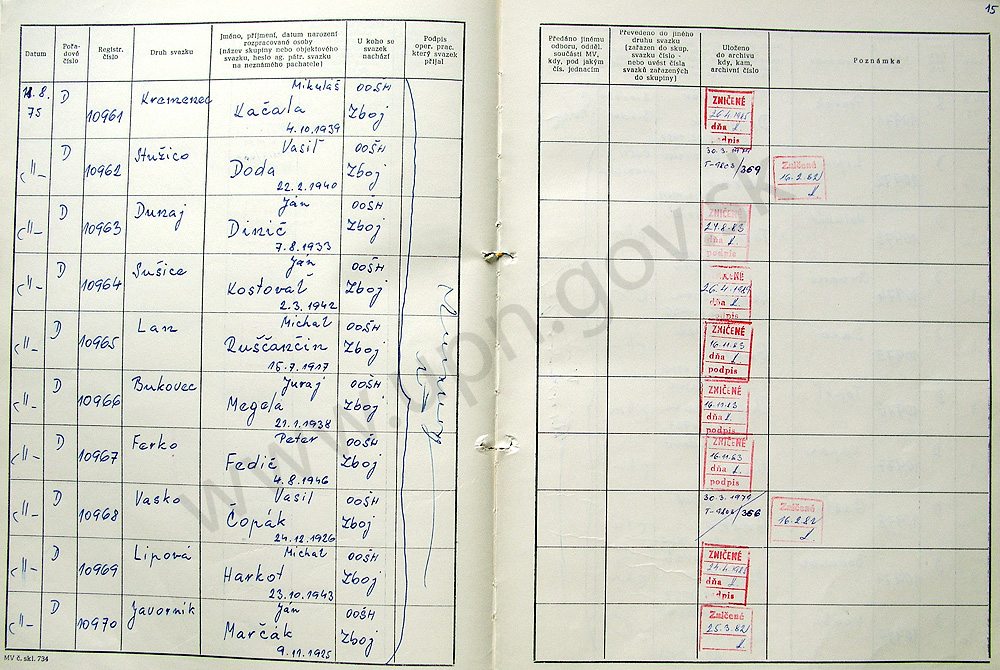 15
Datum
Pořadové číslo
Registr. číslo
Druh svazku
Jméno, příjmení, datum narození rozpracované osoby (název skupiny nebo objektového svazku, heslo ag. pátr. svazku na neznámého pachatele)
U koho se svazek nachází
Podpis oper. prac. který svazek přijal
Předáno jinému odboru, odděl. součásti MV, kdy, pod jakým čís. jednacím
Převedeno do jiného druhu svazku (zařazen do skup. svazku číslo — nebo uvést čísla svazků zařazených do skupiny)
Uloženo do archivu kdy, kam, archivní číslo
Poznámka
8. 75 D 10961 Kremenec Mikuláš Kačala 4.10.1939 OOŠH Zboj
ZNIČENÉ dňa podpis
-"- D 10962 Stužica Vasiľ Doda 22.2.1940 OOŠH Zboj
/369 Zničené 16.2.82
-"- D 10963 Dunaj Ján Dinič 7.8.1933 OOŠH Zboj
ZNIČENÉ dňa podpis
-"- D 10964 Sušice Ján Kostovaľ 2.3.1942 OOŠH Zboj
dňa podpis
-"- D 10965 Lan Michal Ruščančin 15.7.1917 OOŠH Zboj
ZNIČENÉ 16.11.83 dňa podpis
-"- D 10966 Bukovec Juraj Megela 21.1.1938 OOŠH Zboj
ZNIČENÉ 16.11.83 dňa podpis
-"- D 10967 Ferko Peter Fedič 4.8.1946 OOŠH Zboj
ZNIČENÉ 16.11.83 dňa podpis
-"- D 10968 Vasko Vasil Čopák 24.12.1926 OOŠH Zboj
/366 Zničené 16.2.82
-"- D 10969 Lipová Michal Harkot 23.10.1943 OOŠH Zboj
ZNIČENÉ dňa podpis
-"- D 10970 Javorník Ján Marčák 9.11.1925 OOŠH Zboj
Zničené 25.3.82
MV č. skl. 734
www.upn.gov.sk